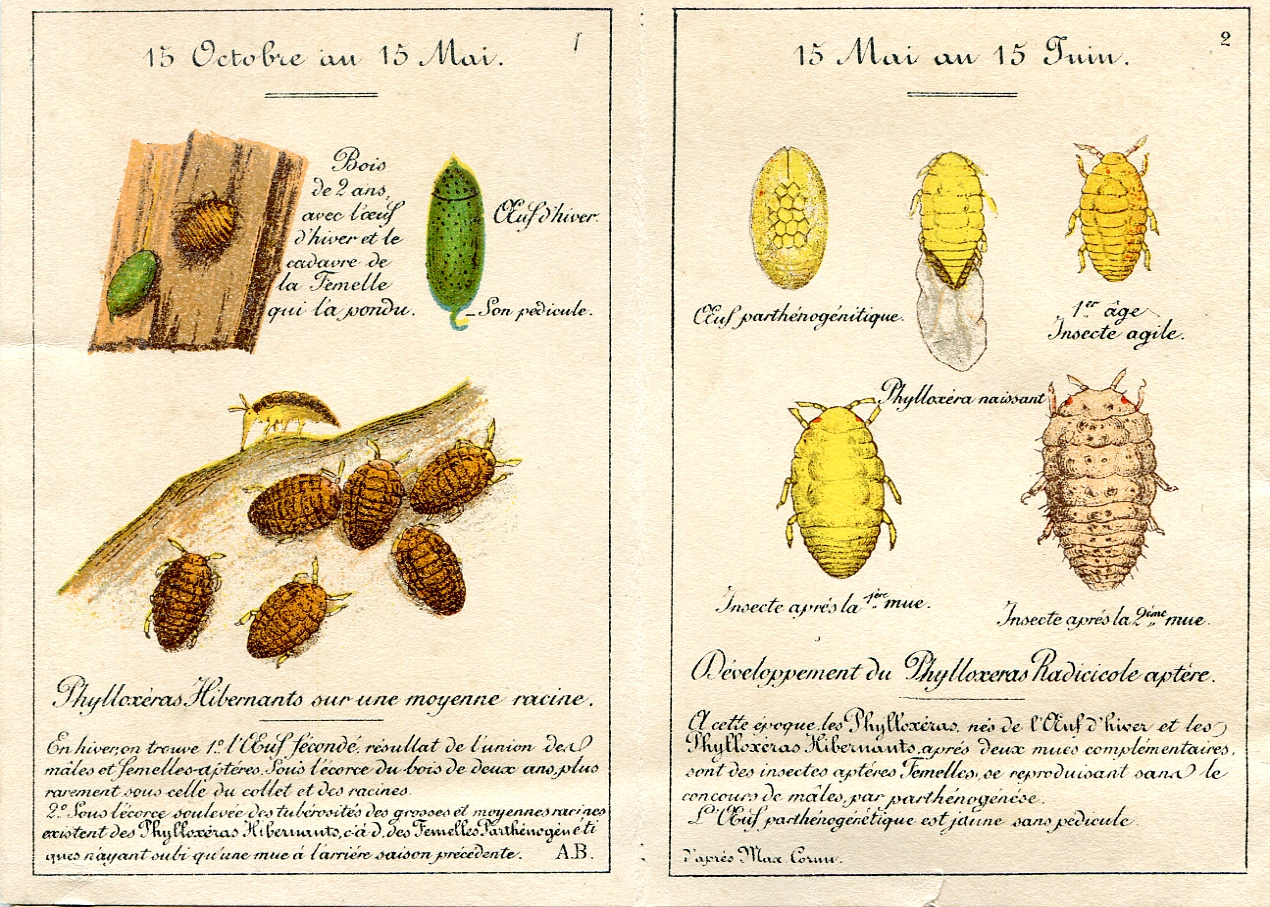 1
15 Octobre au 15 Mai.
Bois
de 2 ans,
avec l'œuf
d'hiver et le
cadavre de
la Femelle
qui l'a pondu.
Œuf d'hiver.
Son pédicule.
Phylloxéras Hibernants sur une moyenne racine.
En hiver, on trouve 1º l'Œuf fécondé, résultat de l'union des
mâles et femelles-aptères. Sous l'écorce du bois de deux ans, plus
rarement sous celle du collet et des racines.
2º Sous l'écorce soulevée des tubérosités des grosses et moyennes racines
existent des Phylloxéras Hibernants, c.à.d. des Femelles Parthénogénéti
ques n'ayant subi qu'une mue à l'arrière saison précédente. A.B.
2
15 Mai au 15 Juin.
Œuf parthénogénitique.
1er âge
Insecte agile.
Phylloxéra naissant
Insecte après la 1ère mue.
Insecte après la 2ème mue.
Développement du Phylloxeras Radicicole aptère.
A cette époque, les Phylloxéras, nés de l'Œuf d'hiver et les
Phylloxéras Hibernants, après deux mues complémentaires,
sont des insectes aptères Femelles, se reproduisant sans le
concours de mâles, par parthénogénèse.
L'Œuf parthénogénétique est jaune sans pédicule.
d'après Max. Cornu.